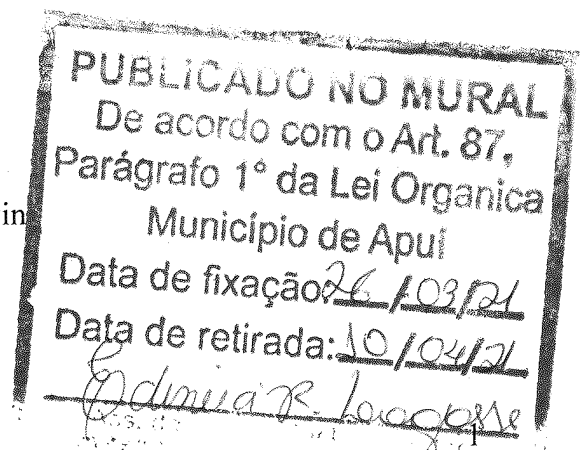 PUBLICADO NO MURAL
De acordo com o Art. 87,
Parágrafo 1° da Lei Organica
in
Município de Apuí
Data de fixação: 26/03/21
Data de retirada: 10/04/21
1